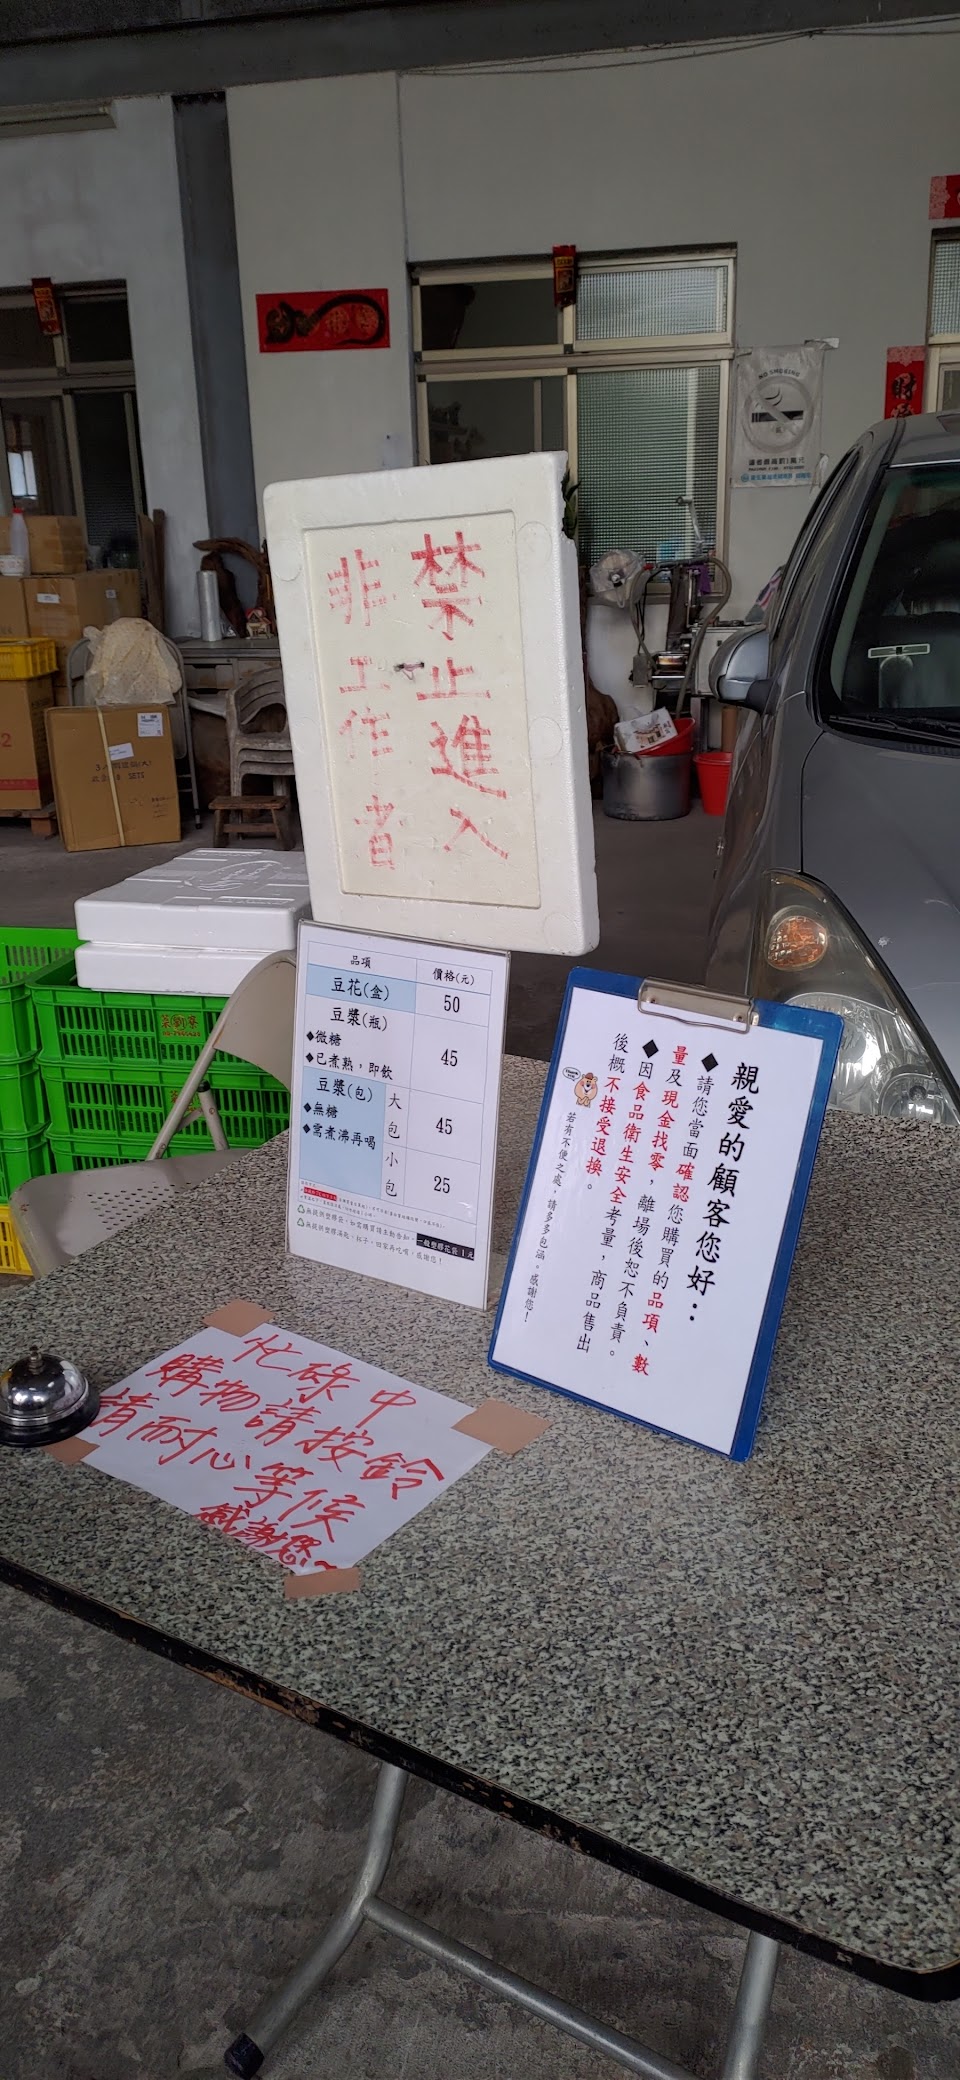 禁止進入
非工作者
品項
價格(元)
豆花(盒)
50
豆漿(瓶)
◆微糖
◆已煮熟，即飲
45
豆漿(包)
◆無糖
◆需煮沸再喝
大包
45
小包
25
一般塑膠花袋1元
親愛的顧客您好：
◆請您當面確認您購買的品項、數
量及現金找零，離場後恕不負責。
◆因食品衛生安全考量，商品售出
後概不接受退換。
若有不便之處，請多多包涵。感謝您！
忙碌中
購物請按鈴
請耐心等候
感謝您~
NO SMOKING
財